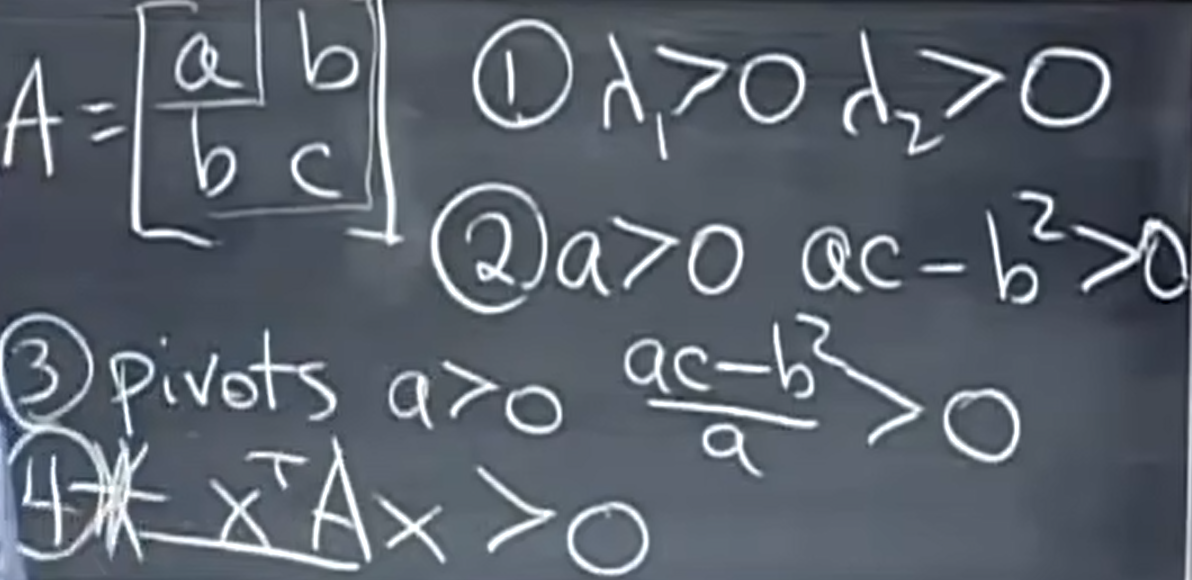 A = [a b
b c]
① λ₁>0 λ₂>0
② a>0 ac-b²>0
③ pivots a>0 (ac-b²)/a >0
④ * xᵀAx >0